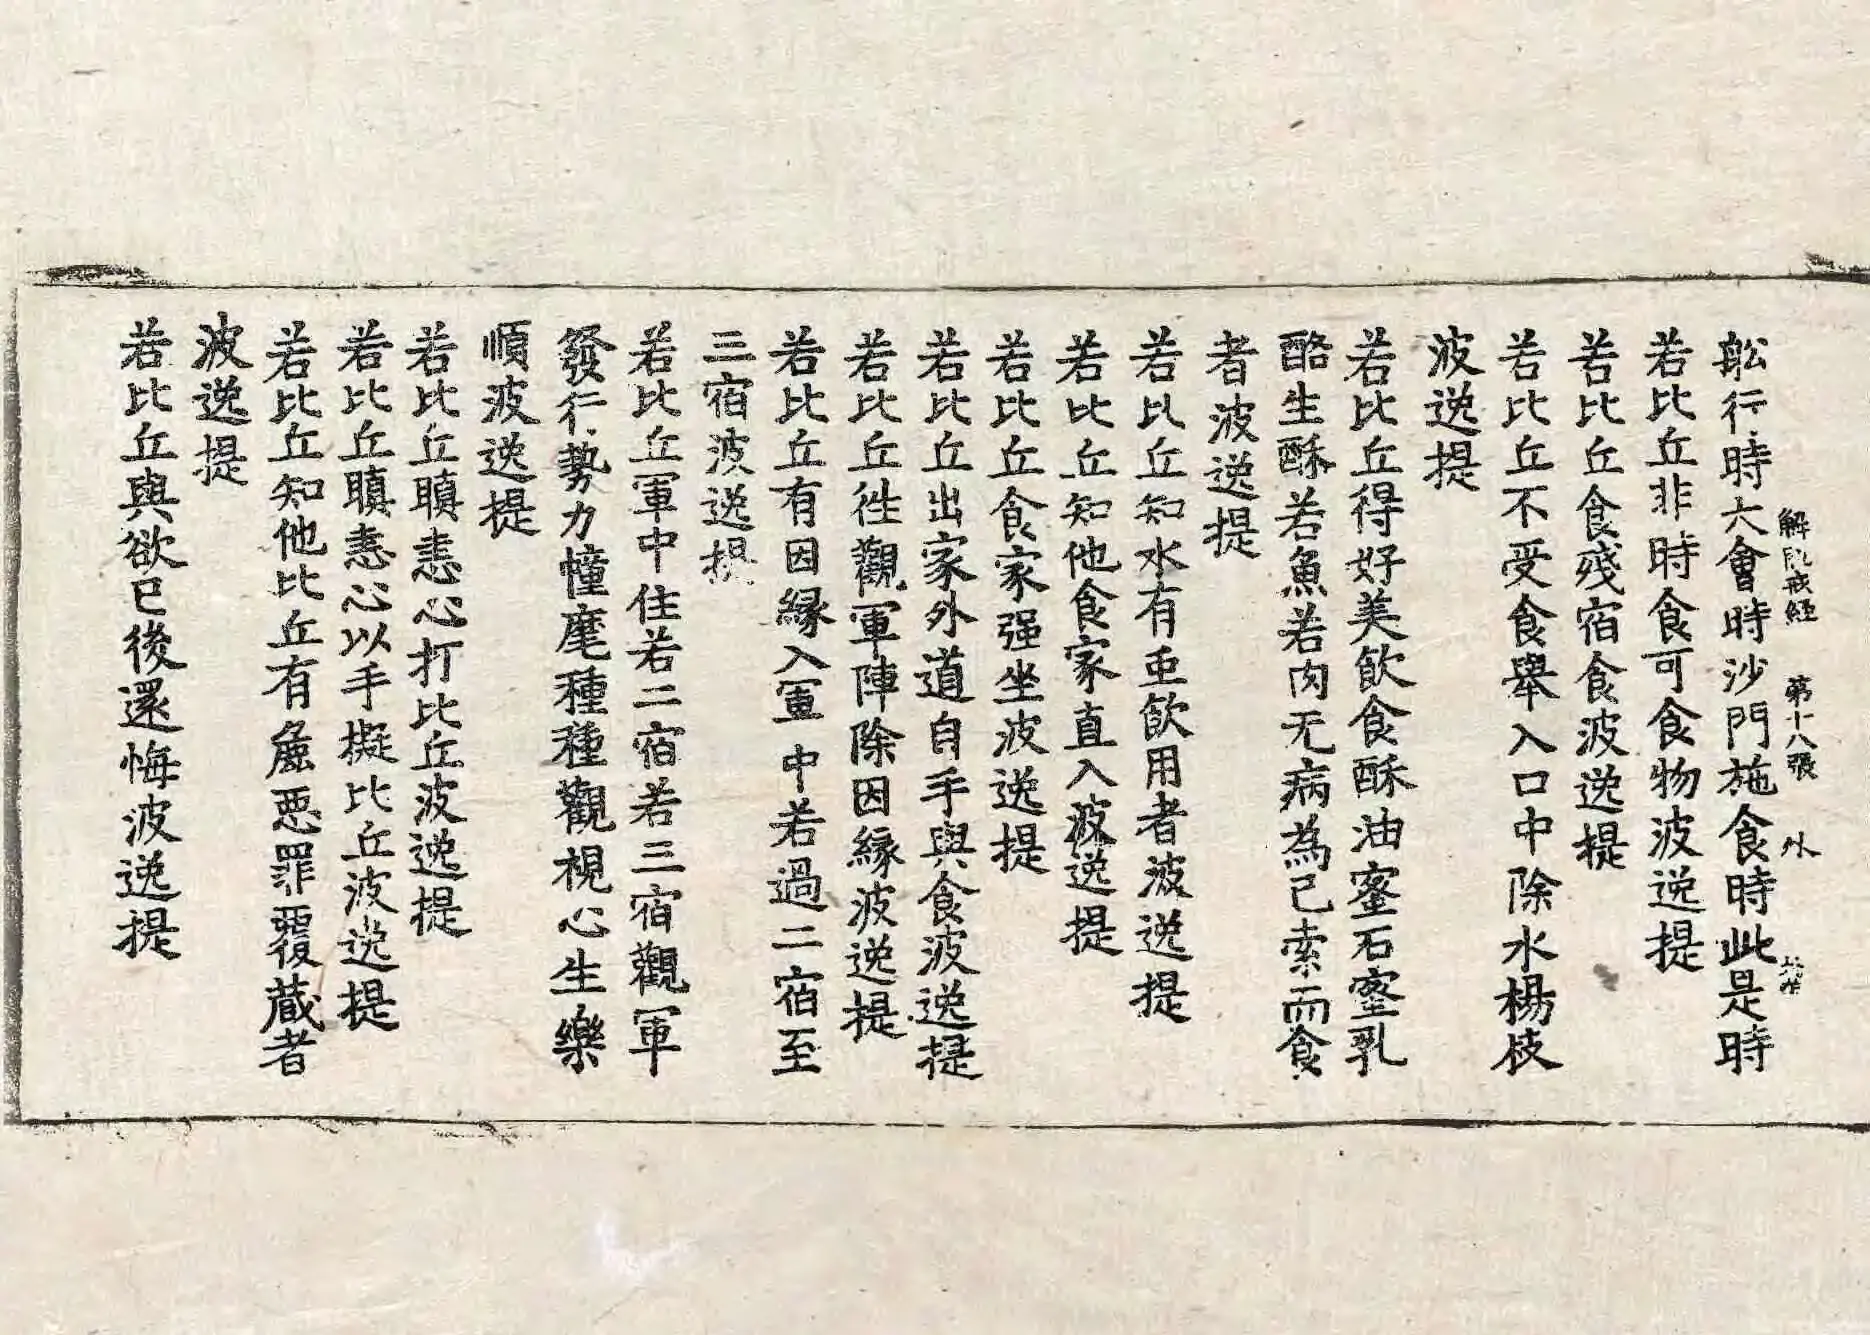 解脫戒經 第十八張 外
舩行時大會時沙門施食時此是時
若比丘非時食可食物波逸提
若比丘食殘宿食波逸提
若比丘不受食舉入口中除水楊枝
波逸提
若比丘得好美飲食酥油蜜石蜜乳
酪生酥若魚若肉无病為己索而食
者波逸提
若比丘知水有虫飲用者波逸提
若比丘知他食家直入波逸提
若比丘食家强坐波逸提
若比丘出家外道自手與食波逸提
若比丘往觀軍陣除因緣波逸提
若比丘有因緣入軍中若過二宿至
三宿波逸提
若比丘軍中住若二宿若三宿觀軍
發行勢力幢麾種種觀視心生樂
順波逸提
若比丘瞋恚心打比丘波逸提
若比丘瞋恚心以手擬比丘波逸提
若比丘知他比丘有麁惡罪覆藏者
波逸提
若比丘與欲已後還悔波逸提